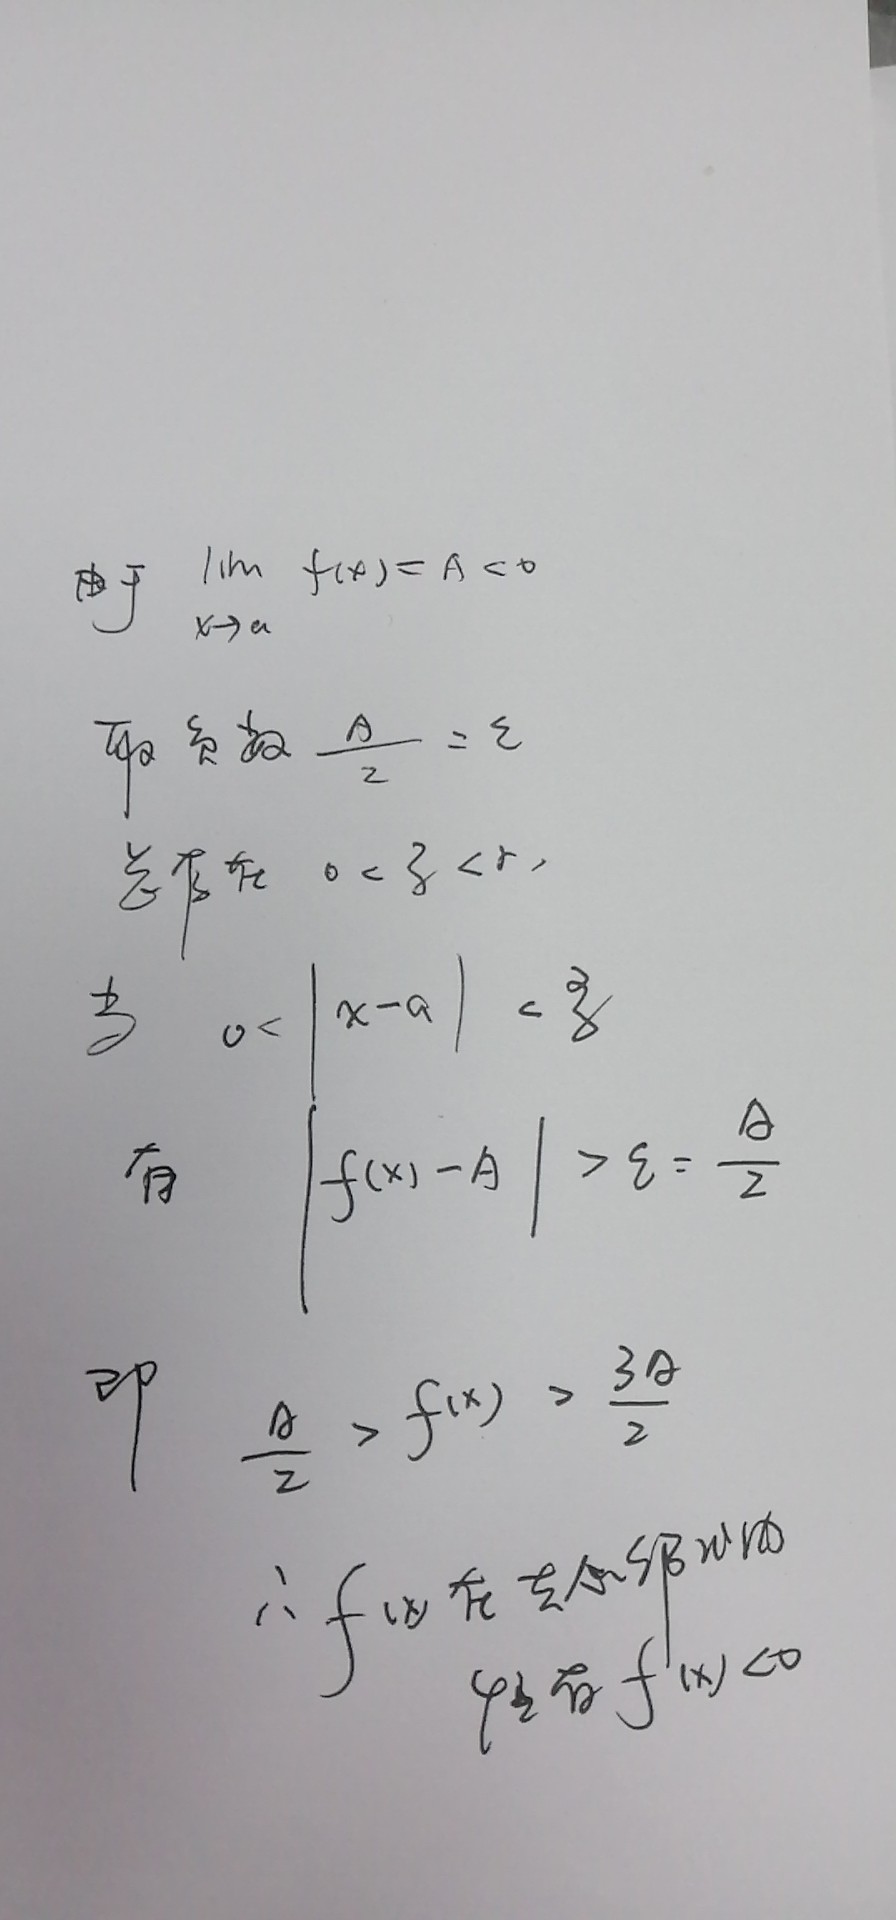 由于 lim f(x) = A < 0
x→a
取负数 A/2 = ε
总存在 0 < ξ < r,
当 0 < |x-a| < ξ
有 |f(x) - A| > ε = A/2
即 A/2 > f(x) > 3A/2
∴ f(x) 在去心邻域内
恒有 f(x) < 0